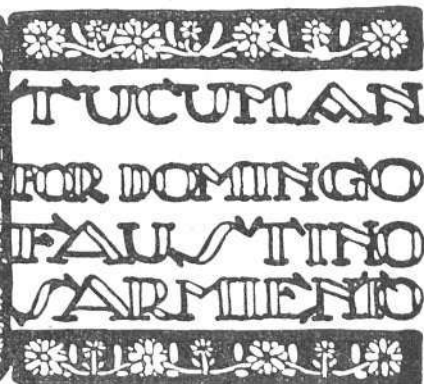 TUCUMAN
POR DOMINGO
FAUSTINO
SARMIENTO